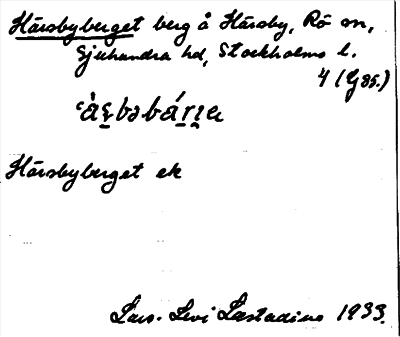 Hårsbyberget berg å Hårsby, Rö sn,
Sjuhundra hd, Stockholms l.
4 (G 35.)
Hårsbyberget ek
Lars-Levi Læstadius 1933.